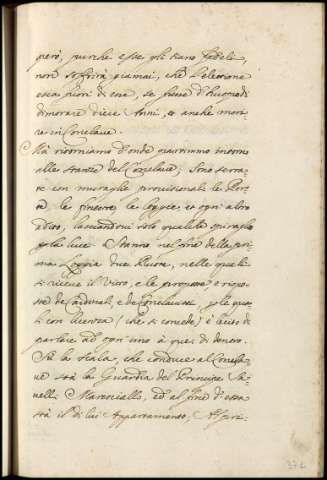 però, purche essi gli siano fedeli,
non soffrirà giamai, che l'elettione
esca fuori di essi, se fusse d'huopo di
dimorare dieci Anni, et anche mori-
re in Conclave.
Mà ritorniamo d'onde partimmo intorno
alle stanze del Conclave; sono serra-
te con muraglie provisionali le Por-
te, le finestre, le loggie, et ogni altro
adito, lasciandovi solo qualche spiraglio
p la luce. Stanno nel fine della pri-
ma Loggia due Ruote, nelle quali
si riceve il Vitto, e le proposte e rispo-
ste de Cardinali, e de Conclavisti, p le qua-
li con licenza (che si concede) è lecito di
parlare ad ogni uno à quei di dentro.
Sù la scala, che conduce al Concla-
ve stà la Guardia del Principe Sa-
velli Maresciallo, ed al fine d'essa
stà il di lui Appartamento, All'pri-